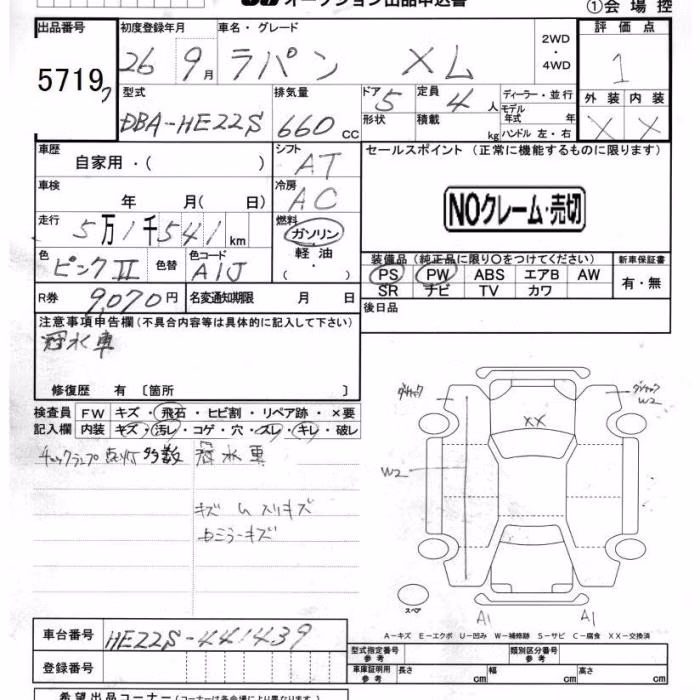 オークション出品申込書
①会場控
出品番号 初度登録年月 車名・グレード 2WD ・ 4WD 評価点
5719 26 9月 ラパン XL 1
型式 排気量 ドア 5 定員 4人 ディーラー・並行 外装 内装
DBA-HE22S 660cc 形状 積載 kg モデル年式 年 X X
ハンドル 左・右
車歴 自家用・( ) シフト AT セールスポイント (正常に機能するものに限ります)
車検 年 月( 日) 冷房 AC
NOクレーム・売切
走行 5万1千541km 燃料 ガソリン
軽油
( ・ )
色 ピンクII 色替 色コード A1J
装備品 (純正品に限り〇をつけてください) 新車保証書
PS PW ABS エアB AW 有・無
SR ナビ TV カワ
R券 9,070円 名変通知期限 月 日 後日品
注意事項申告欄(不具合内容等は具体的に記入して下さい)
冠水車
修復歴 有 〔箇所 〕
検査員 FW キズ・飛石・ヒビ割・リペア跡・×要
記入欄 内装 キズ・汚レ・コゲ・穴・ズレ・キレ・破レ
チェックランプ点灯多数 冠水車
キズ
ミラーキズ
W2
XX
W2
A1 A1
スペア
A-キズ E-エクボ U-凹み W-補修跡 S-サビ C-腐食 XX-交換済
車台番号 HE22S-441439
登録番号
型式指定番号 参考 類別区分番号 参考
車庫証明用 参考 長さ cm 幅 cm 高さ cm
希望出品コーナー(コーナーは各会場により異なります)